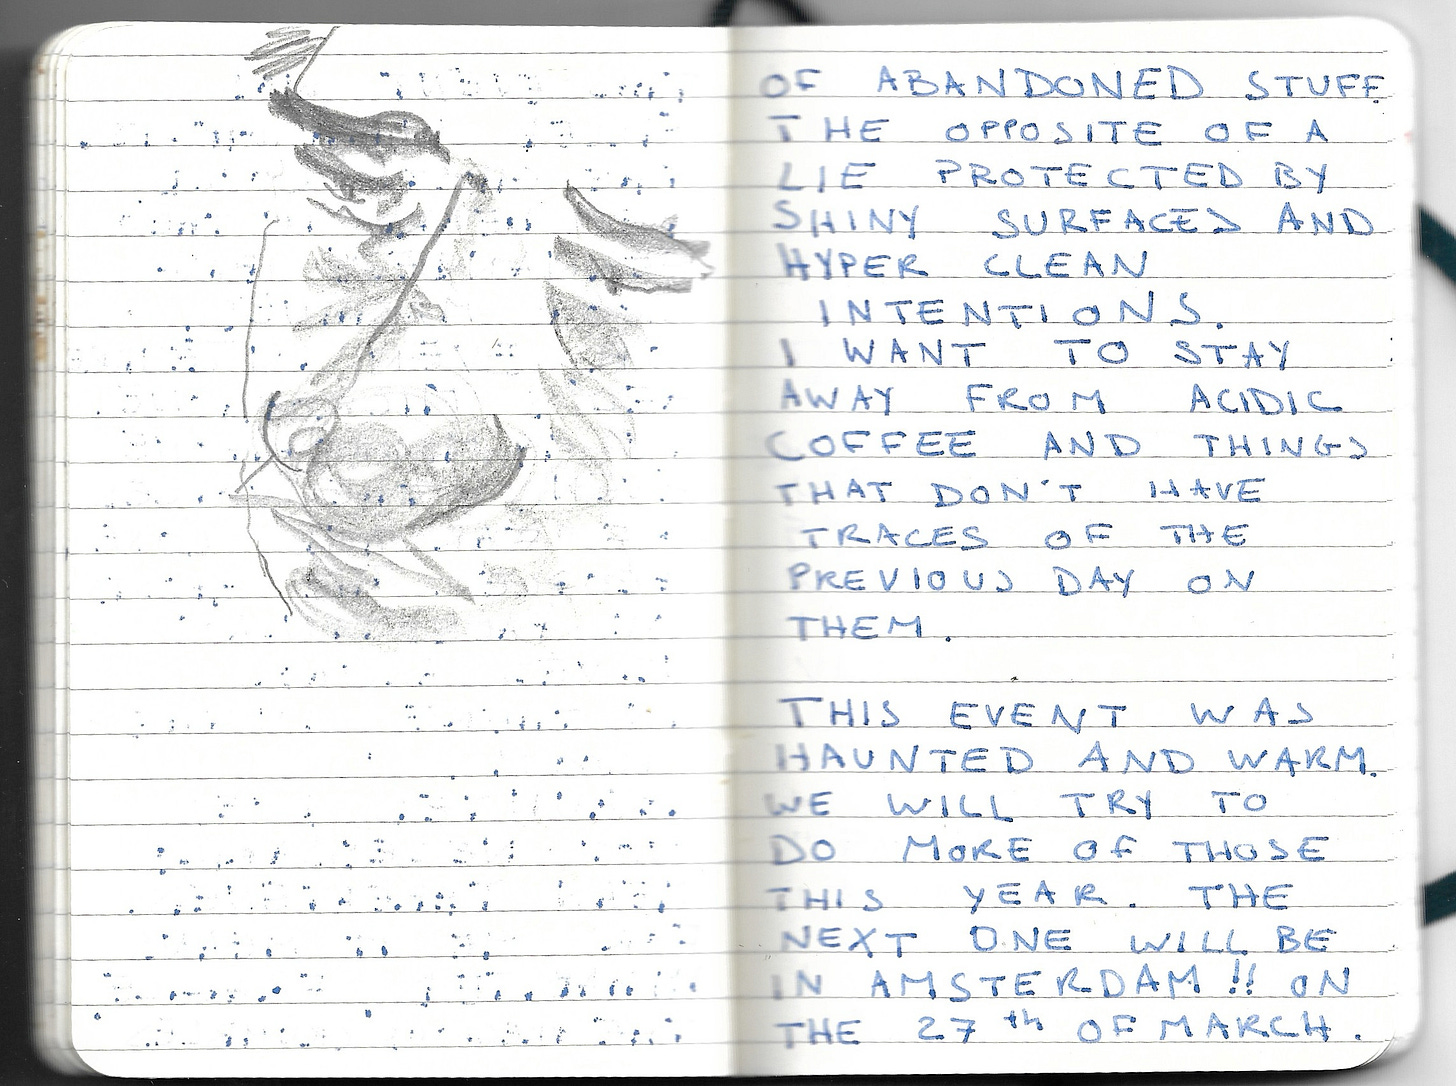 OF ABANDONED STUFF
THE OPPOSITE OF A
LIE PROTECTED BY
SHINY SURFACES AND
HYPER CLEAN
INTENTIONS.
I WANT TO STAY
AWAY FROM ACIDIC
COFFEE AND THINGS
THAT DON'T HAVE
TRACES OF THE
PREVIOUS DAY ON
THEM.
THIS EVENT WAS
HAUNTED AND WARM.
WE WILL TRY TO
DO MORE OF THOSE
THIS YEAR. THE
NEXT ONE WILL BE
IN AMSTERDAM!! ON
THE 27th OF MARCH.